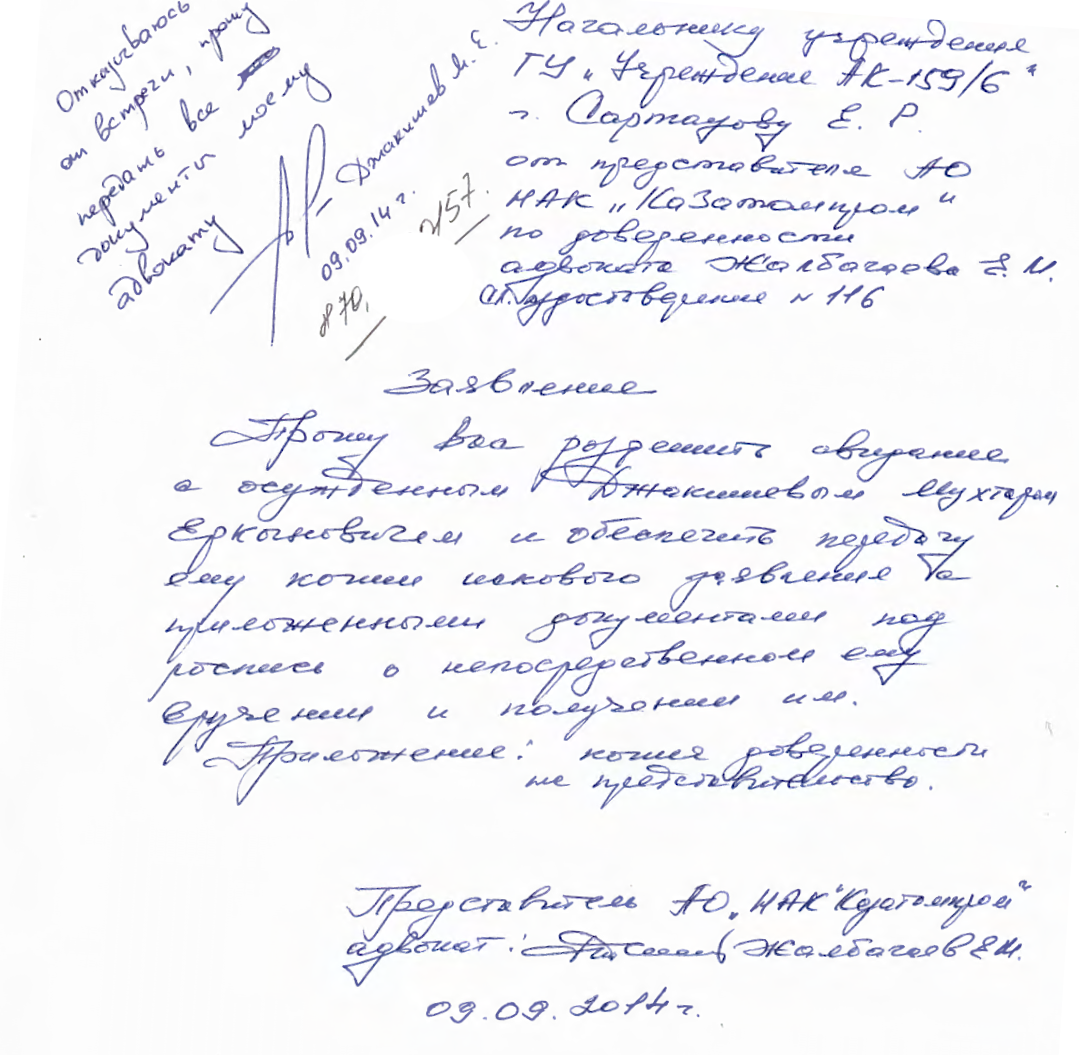 Отказываюсь
от встречи, прошу
передать все
документы моему
адвокату
Джакишев М. Е.
09.09.14 г.
Начальнику учреждения
ГУ „Учреждение АК-159/6"
г. Сартаурову Е. Р.
от представителя АО
НАК „КаЗатомпром"
по доверенности
адвоката Жалбагаева Е. М.
удостоверение № 116
Заявление
Прошу Вас разрешить свидание
с осужденным Джакишевым Мухтаром
Еркыновичем и обеспечить передачу
ему копии искового заявления с
приложенными документами под
роспись о непосредственном ему
вручении и получении им.
Приложение: копия доверенности
на представительство.
Представитель АО „НАК "Казатомпром"
адвокат: Жалбагаев Е.М.
09.09.2014 г.